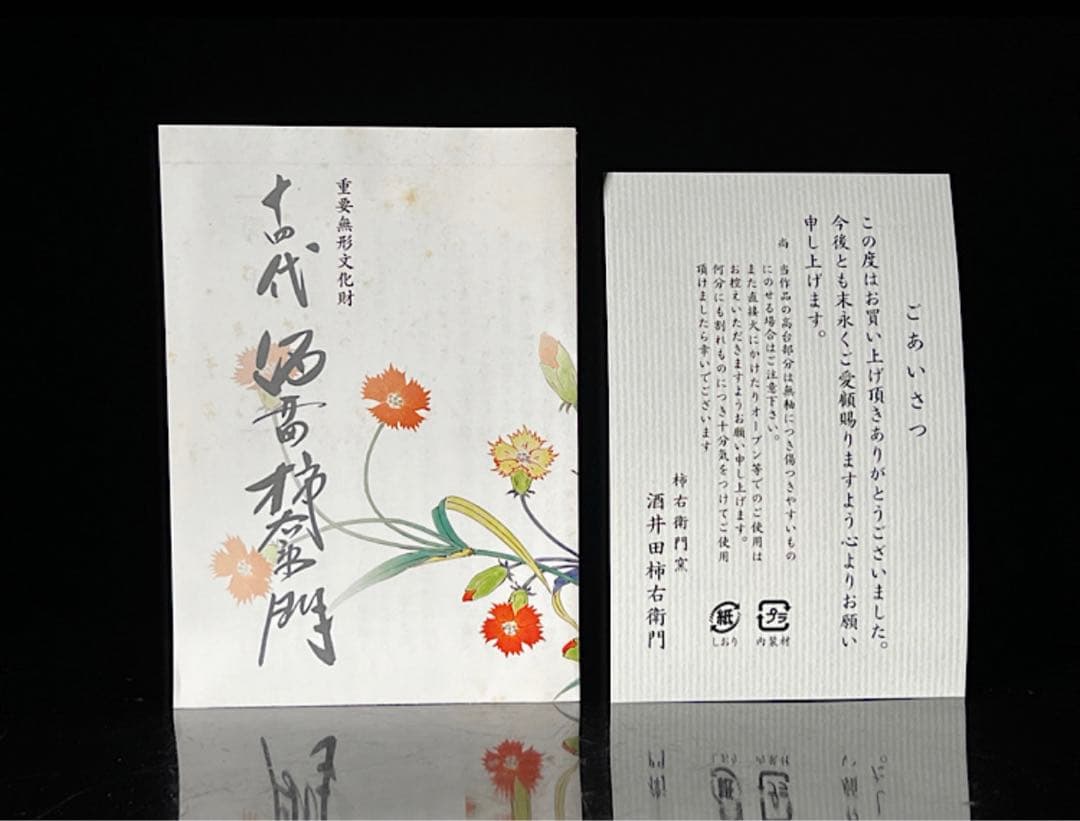 重要無形文化財
十四代 酒井田柿右衛門
ごあいさつ
この度はお買い上げ頂きありがとうございました。
今後とも末永くご愛顧賜りますよう心よりお願い
申し上げます。
尚 当作品の高台部分は無釉につき傷つきやすいもの
にのせる場合はご注意下さい。
また直接火にかけたりオーブン等でのご使用は
お控えいただきますようお願い申し上げます。
何分にも割れものにつき十分気をつけてご使用
頂けましたら幸いでございます
柿右衛門窯
酒井田柿右衛門
プラ
内装材
紙
しおり